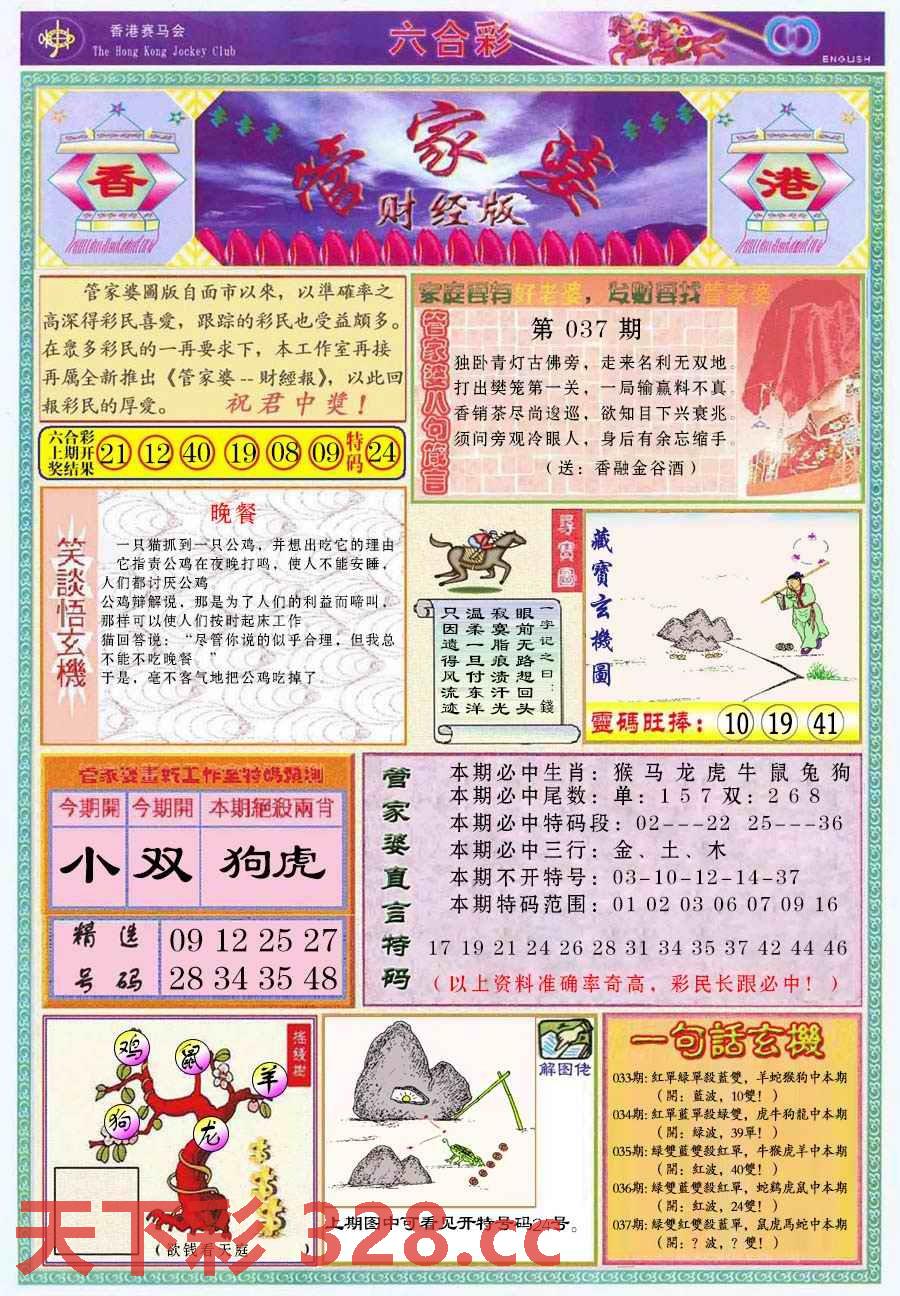 香港赛马会
The Hong Kong Jockey Club
六合彩
ENGLISH
香
管家婆
财经版
港
管家婆圖版自面市以來，以準確率之
高深得彩民喜愛，跟踪的彩民也受益頗多。
在衆多彩民的一再要求下，本工作室再接
再厲全新推出《管家婆--財經報》，以此回
報彩民的厚愛。 祝君中獎！
六合彩
上期开
奖结果
21 12 40 19 08 09
特码
24
家庭要有好老婆，发财要找管家婆
管家婆八句箴言
第 037 期
独卧青灯古佛旁，走来名利无双地。
打出樊笼第一关，一局输赢料不真。
香销茶尽尚逡巡，欲知目下兴衰兆。
须问旁观冷眼人，身后有余忘缩手。
（送：香融金谷酒）
笑談悟玄機
晚餐
一只猫抓到一只公鸡，并想出吃它的理由
它指责公鸡在夜晚打鸣，使人不能安睡，
人们都讨厌公鸡
公鸡辩解说，那是为了人们的利益而啼叫，
那样可以使人们按时起床工作
猫回答说：“尽管你说的似乎合理，但我总
不能不吃晚餐 ”
于是，毫不客气地把公鸡吃掉了
尋寶圖
一字记之曰：錢
眼前无路想回头
寂寞脂痕渍汗光
温柔一旦付东洋
只因遗得风流迹
藏寶玄機圖
靈碼旺捧： 10 19 41
今期開 今期開 本期絕殺兩肖
小 双 狗虎
精选
号码
09 12 25 27
28 34 35 48
管家婆直言特码
本期必中生肖：猴 马 龙 虎 牛 鼠 兔 狗
本期必中尾数：单：1 5 7 双：2 6 8
本期必中特码段：02---22 25---36
本期必中三行：金、土、木
本期不开特号：03-10-12-14-37
本期特码范围：01 02 03 06 07 09 16
17 19 21 24 26 28 31 34 35 37 42 44 46
（以上资料准确率奇高，彩民长跟必中！）
摇錢樹
鸡
鼠
羊
狗
龙
（欲钱看天庭 ）
解图佬
上期图中可看见开特号码24号。
一句話玄機
033期: 紅單緑單殺藍雙，羊蛇猴狗中本期
（開：藍波，10雙！）
034期: 紅單藍單殺緑雙，虎牛狗龍中本期
（開：緑波，39單！）
035期: 緑雙藍雙殺紅單，牛猴虎羊中本期
（開：紅波，40雙！）
036期: 緑雙藍雙殺紅單，蛇鷄虎鼠中本期
（開：紅波，24雙！）
037期: 緑雙紅雙殺藍單，鼠虎馬蛇中本期
（開：？波，？雙！）
天下彩 328.cc